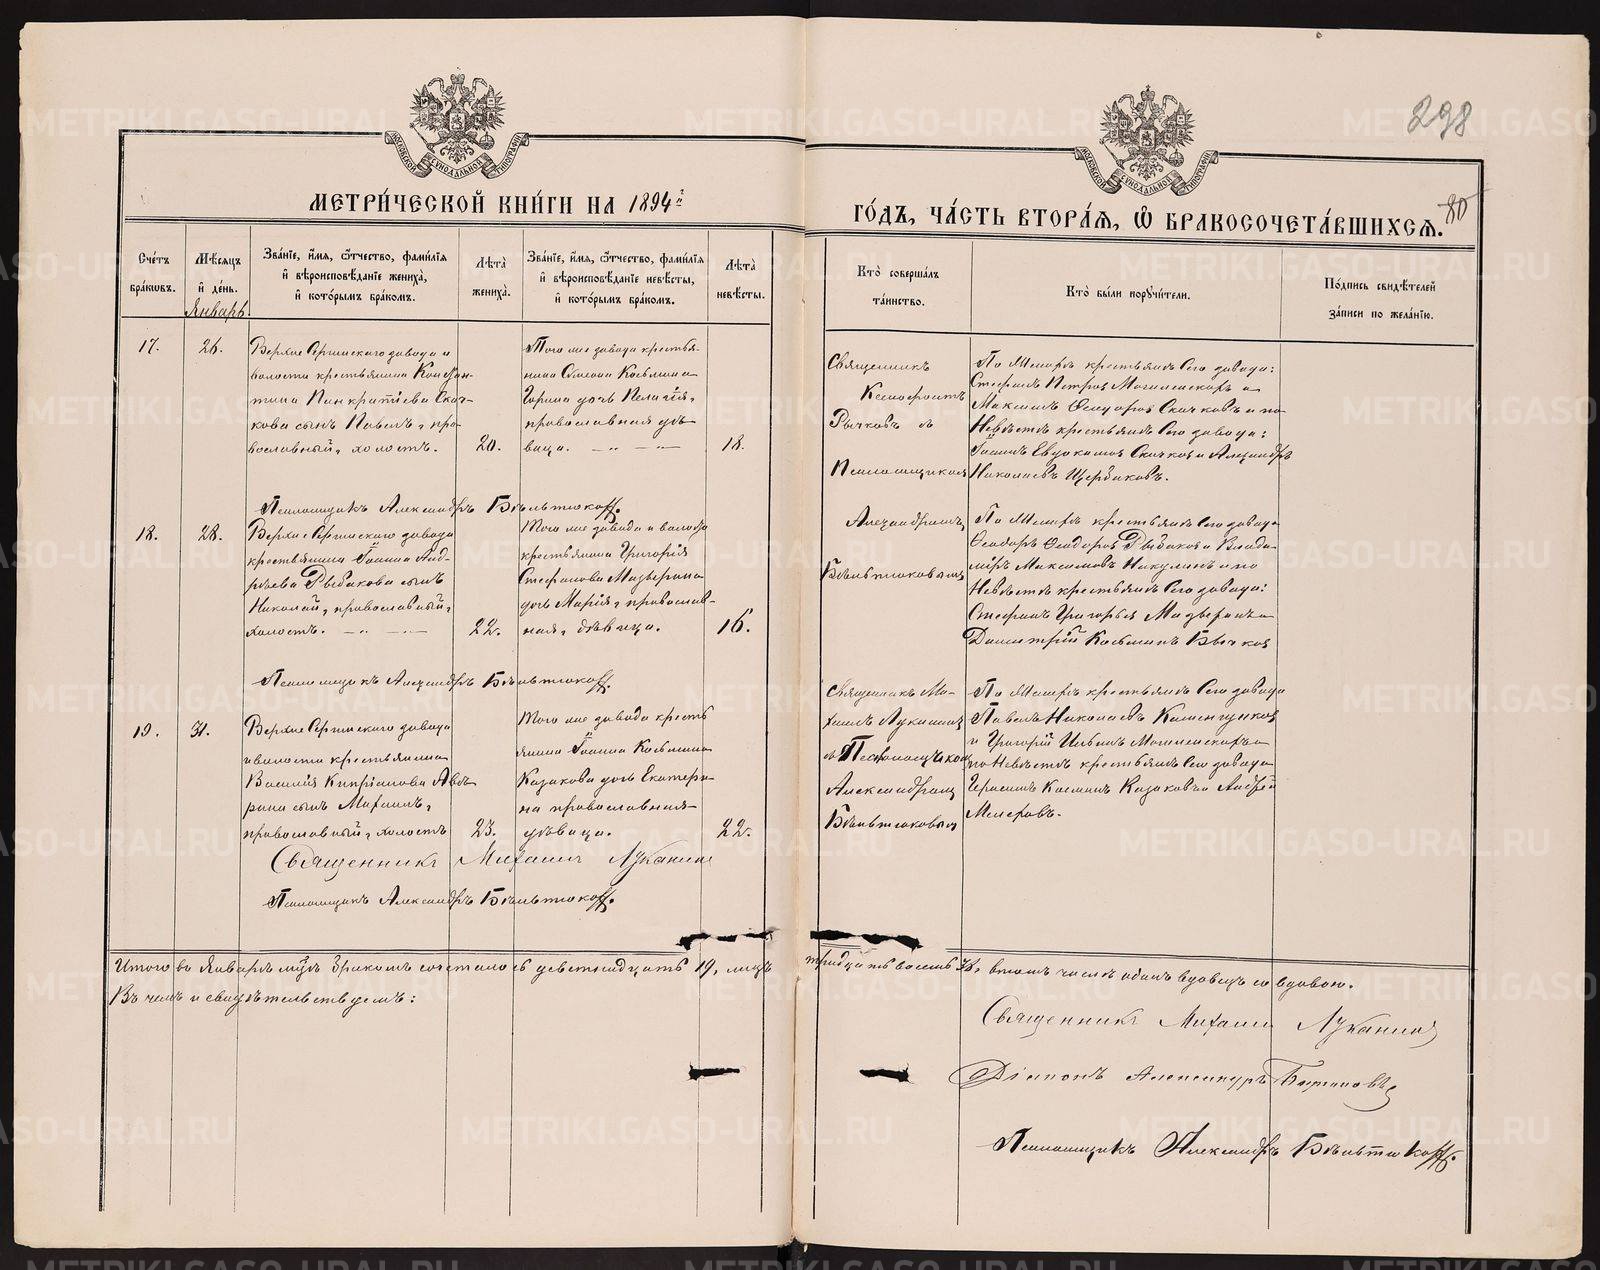 298
80
МОСКОВСКОЙ СѴНОДАЛЬНОЙ ТИПОГРАФІИ
МОСКОВСКОЙ СѴНОДАЛЬНОЙ ТИПОГРАФІИ
МЕТРИ́ЧЕСКОЙ КНИ́ГИ НА 1894й
ГО́ДЪ, ЧА́СТЬ ВТОРА́Я, Ѡ БРАКОСОЧЕТА́ВШИХСЯ.
Сче́тъ
бра́ковъ.
Мѣ́сяцъ
и де́нь.
Январь.
Зва́нїе, и́мя, ѻ́тчество, фами́лїя
и вѣроисповѣ́данїе жениха̀,
и кото́рымъ бра́комъ.
Лѣта̀
жениха̀.
Зва́нїе, и́мя, ѻ́тчество, фами́лїя
и вѣроисповѣ́данїе невѣ́сты,
и кото́рымъ бра́комъ.
Лѣта̀
невѣ́сты.
Кто̀ соверша́лъ
та́инство.
Кто̀ бы́ли поручи́тели.
По́дпись свидѣ́телей
за́писи по жела́нїю.
17.
26.
Верхне Сергинскаго завода и
волости крестьянина Констан-
тина Панкратіева Скач-
кова сынъ Павелъ, пра-
вославный, холостъ.
20.
Того же завода крестья-
нина Симеона Космина
дочь Пелагія,
православная дѣ-
вица.
18.
Священникъ
Ксенофонтъ
Рычковъ съ
Псаломщикомъ
Александромъ
Бѣльтюковымъ
По Женихѣ крестьяне Сего завода:
Стефанъ Петровъ Могиленскихъ и
Максимъ Ѳеодоровъ Скачковъ и по
Невѣстѣ крестьяне Сего завода:
Іоаннъ Евдокимовъ Скачковъ и Александръ
Николаевъ Щербаковъ.
Псаломщикъ Александръ Бѣльтюкофф.
18.
28.
Верхне Сергинскаго завода
крестьянина Іоанна Анд-
рѣева Рыбакова сынъ
Николай, православный,
холостъ.
22.
Того же завода и волости
крестьянина Григорія
Стефанова Мазыгина
дочь Марія, православ-
ная, дѣвица.
16.
По Женихѣ крестьяне Сего завода
Ѳеодоръ Ѳеодоровъ Рыбаковъ и Влади-
міръ Максимовъ Никулинъ и по
Невѣстѣ крестьяне Сего завода:
Стефанъ Григорьевъ и
Димитрій Косминъ Бычковъ
Псаломщикъ Александръ Бѣльтюкофф.
19.
31.
Верхне Сергинскаго завода
и волости крестьянина
Василія Кипріанова
сынъ Михаилъ,
православный, холостъ
23.
Того же завода кресть
янина Іоанна Космина
Казакова дочь Екатери-
на православная
дѣвица.
22.
Священникъ Ми-
хаилъ Луканинъ
съ Псаломщикомъ
Александромъ
Бѣльтюковымъ
По Женихѣ крестьяне Сего завода
Павелъ Николаевъ
и Григорій Ильинъ Могиленскихъ и
по Невѣстѣ крестьяне Сего завода
Герасимъ Косминъ Казаковъ и Андрей
Священникъ Михаилъ Луканинъ
Псаломщикъ Александръ Бѣльтюкофф.
Итого въ Январѣ м-цѣ Бракомъ сочеталось девятнадцать 19, лицъ тридцать восемь 38, въ томъ числѣ одинъ вдовецъ со вдовою.
Въ чемъ и свидѣтельствуемъ:
Священникъ Михаилъ Луканинъ
Діаконъ Александръ
Псаломщикъ Александръ Бѣльтюкофф.
METRIKI.GASO-URAL.RU